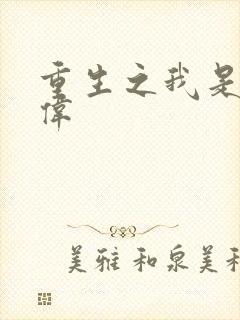 重生之我是
偉
美雅和泉美和